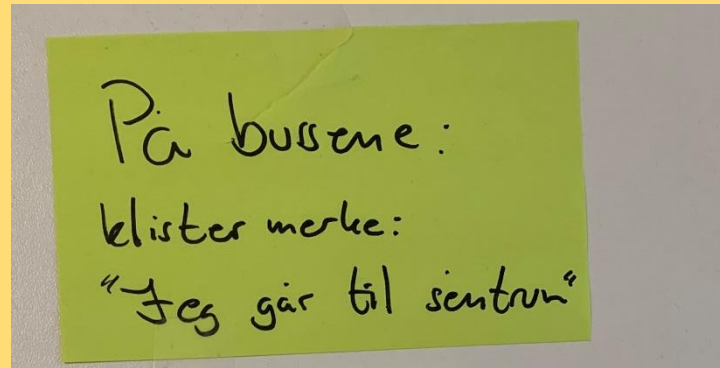 På bussene:
klister merke:
"Jeg går til sentrum"